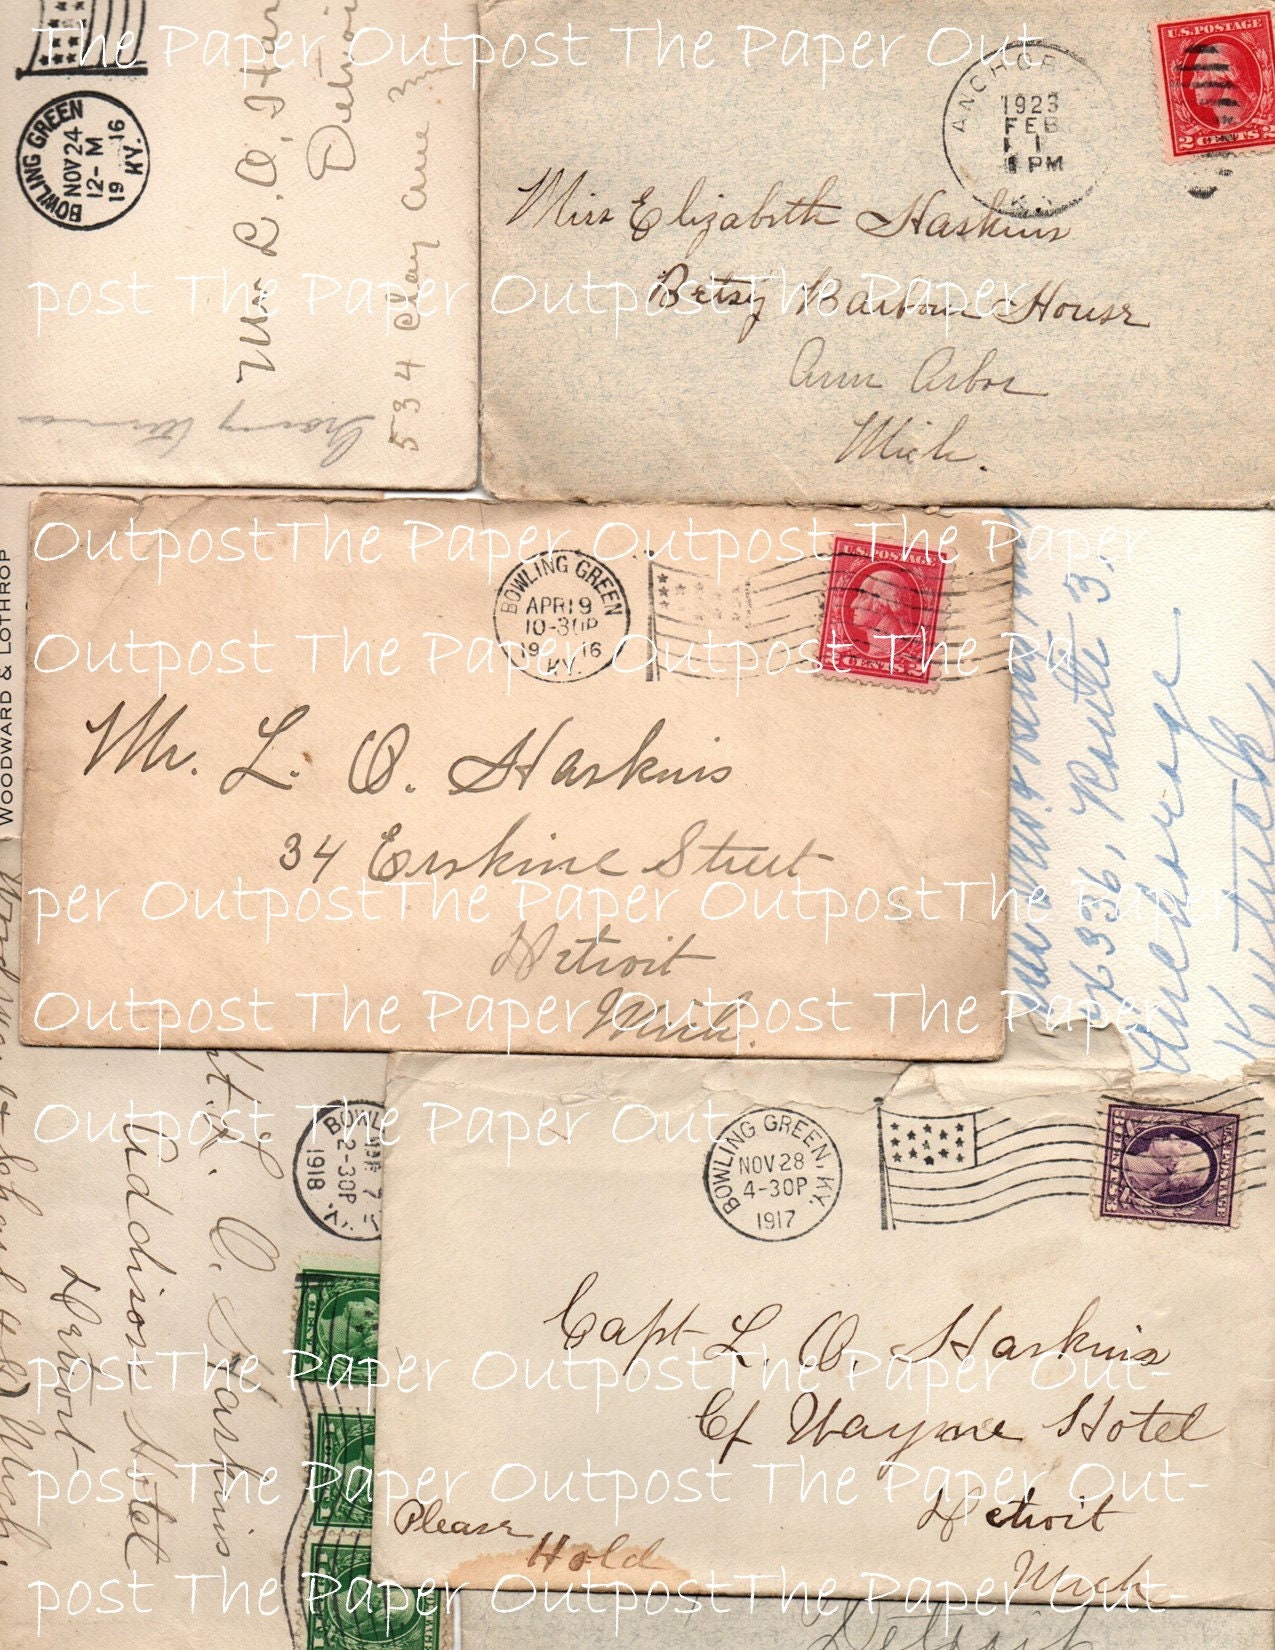 BOWLING GREEN
NOV 24
12-M
19 16
KY.
Mr L. O. Has
Detroi
534 Clay Ave
ANCHORA
1923
FEB
1
PM
U.S. POSTAGE
2 CENTS 2
Miss Elizabeth Haskins
Betsy Barbour House
Ann Arbor
Mich.
WOODWARD & LOTHROP
BOWLING GREEN
APR 19
10-30P
19 16
KY.
U.S. POSTAGE
2 CENTS 2
Mr. L. O. Haskins
34 Erskine Street
Detroit
Mich.
336, Route 3,
Anchorage
Kentucky
BOWLI
7
2-30P
1918
Y.
t. L. O. Haskins
Addison Hotel
Detroit
Mich.
BOWLING GREEN, KY.
NOV 28
4-30P
1917
U.S. POSTAGE
Capt L. O. Haskins
Cf Wayne Hotel
Detroit
Mich
Please
Hold
Detroit
The Paper Outpost The Paper Out
post The Paper Outpost The Paper
OutpostThe Paper OutpostThe Paper
Outpost The Paper Outpost The Pa
per OutpostThe Paper OutpostThe Paper
Outpost The Paper Outpost The Paper
Outpost The Paper Out-
postThe Paper OutpostThe Paper Out-
post The Paper OutpostThe Paper Out-
post The Paper Outpost The Paper Out-